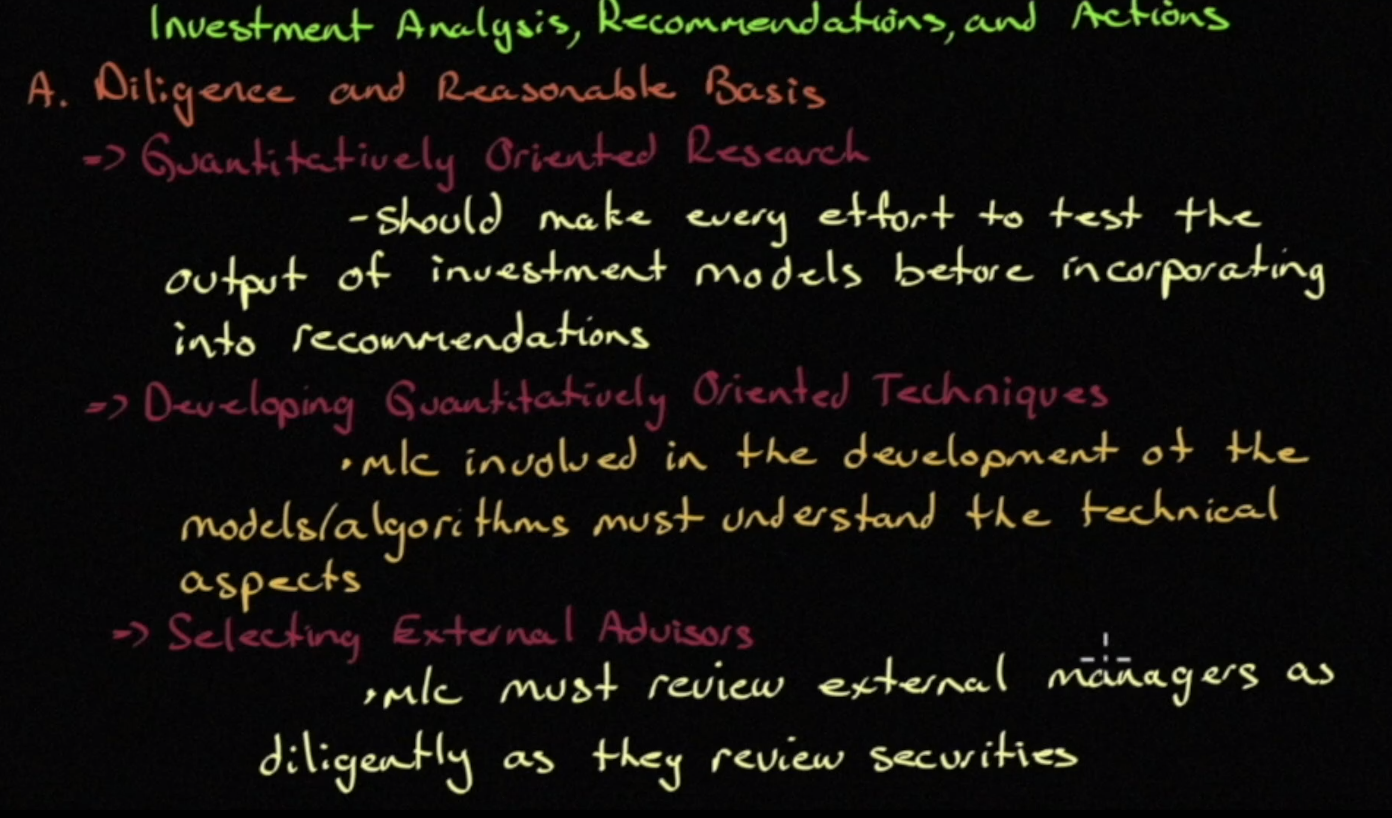 Investment Analysis, Recommendations, and Actions
A. Diligence and Reasonable Basis
=> Quantitatively Oriented Research
- should make every effort to test the
output of investment models before incorporating
into recommendations
=> Developing Quantitatively Oriented Techniques
• M/C involved in the development of the
models/algorithms must understand the technical
aspects
=> Selecting External Advisors
• M/C must review external managers as
diligently as they review securities